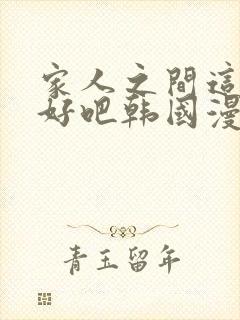 家人之間這
好吧韩國漫
青玉留年